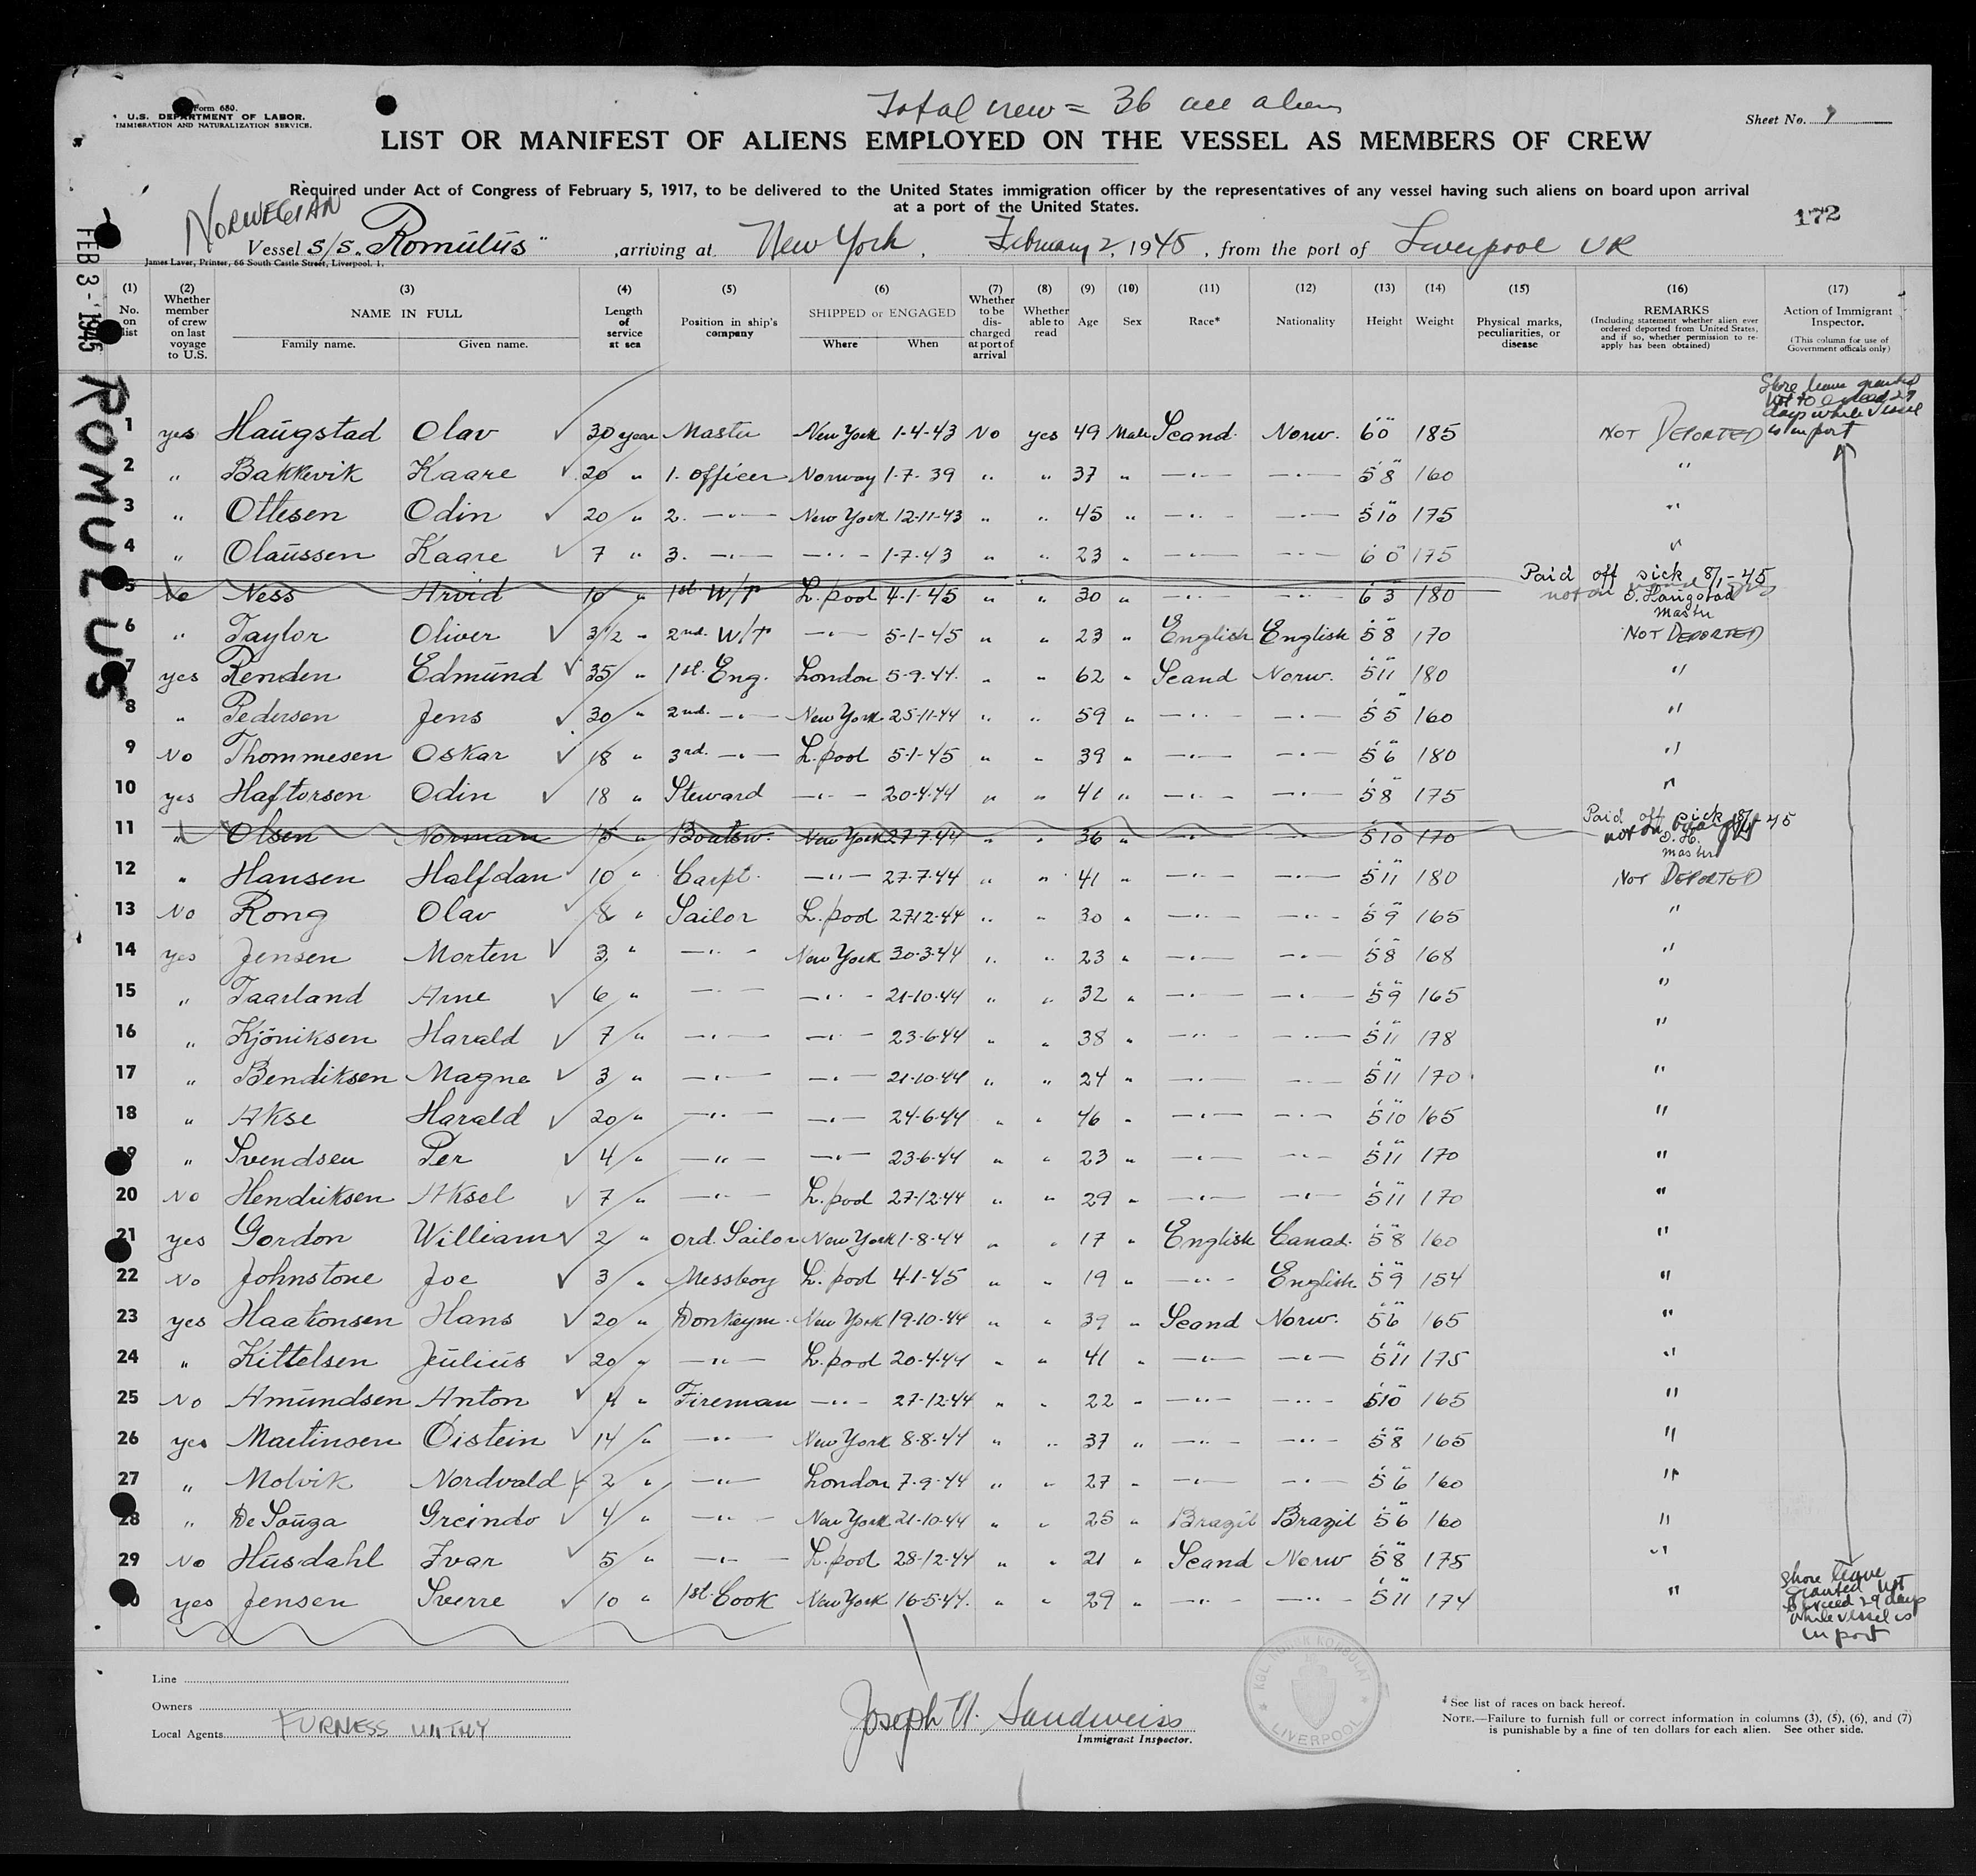 Total crew = 36 all aliens
Form 680.
U.S. DEPARTMENT OF LABOR.
IMMIGRATION AND NATURALIZATION SERVICE.
Sheet No.
LIST OR MANIFEST OF ALIENS EMPLOYED ON THE VESSEL AS MEMBERS OF CREW
Required under Act of Congress of February 5, 1917, to be delivered to the United States immigration officer by the representatives of any vessel having such aliens on board upon arrival
at a port of the United States.
172
NORWEGIAN
Vessel S/S. "Romulus" , arriving at New York , February 2, 1945 , from the port of Liverpool UK
James Laver, Printer, 66 South Castle Street, Liverpool. 1.
FEB 3 - 1945
ROMULUS
(1) (2) (3) (4) (5) (6) (7) (8) (9) (10) (11) (12) (13) (14) (15) (16) (17)
No. on list
Whether member of crew on last voyage to U.S.
NAME IN FULL
Family name. Given name.
Length of service at sea
Position in ship's company
SHIPPED or ENGAGED
Where When
Whether to be discharged at port of arrival
Whether able to read
Age
Sex
Race*
Nationality
Height
Weight
Physical marks, peculiarities, or disease
REMARKS
(Including statement whether alien ever ordered deported from United States, and if so, whether permission to re-apply has been obtained)
Action of Immigrant Inspector.
(This column for use of Government officals only)
Shore leave granted
not to exceed 29
days while vessel
is in port
1 yes Haugstad Olav 30 year Master New York 1-4-43 No yes 49 Male Scand. Norw. 6'0" 185 NOT DEPORTED
2 " Bakkevik Kaare 20 " 1. Officer Norway 1-7-39 " " 37 " —"— —"— 5'8" 160 "
3 " Ottesen Odin 20 " 2. —"— New York 12-11-43 " " 45 " —"— —"— 5'10" 175 "
4 " Olaussen Kaare 7 " 3. —"— —"— 1-7-43 " " 23 " —"— —"— 6'0" 175 "
5 No Ness Arvid 10 " 1st. W/T L.pool 4-1-45 " " 30 " —"— —"— 6'3" 180 Paid off sick 8/1-45
not on O. Haugstad
Master
6 " Taylor Oliver 3 1/2 " 2nd. W/T —"— 5-1-45 " " 23 " English English 5'8" 170 NOT DEPORTED
7 yes Renden Edmund 35 " 1st. Eng. London 5-9-44. " " 62 " Scand Norw. 5'11" 180 "
8 " Pedersen Jens 30 " 2nd. —"— New York 25-11-44 " " 59 " —"— —"— 5'5" 160 "
9 No Thommesen Oskar 18 " 3rd. —"— L.pool 5-1-45 " " 39 " —"— —"— 5'6" 180 "
10 yes Haftorsen Odin 18 " Steward —"— 20-4-44 " " 41 " —"— —"— 5'8" 175 "
11 " Olsen Norman 15 " Boatsw. New York 27-7-44 " " 36 " —"— —"— 5'10" 170 Paid off sick 8/1 45
not on board
O.H.
Master
12 " Hansen Halfdan 10 " Carpt. —"— 27-7-44 " " 41 " —"— —"— 5'11" 180 NOT DEPORTED
13 No Rong Olav 8 " Sailor L.pool 27-12-44 " " 30 " —"— —"— 5'9" 165 "
14 yes Jensen Morten 3 " —"— New York 30-3-44 " " 23 " —"— —"— 5'8" 168 "
15 " Taarland Arne 6 " —"— —"— 21-10-44 " " 32 " —"— —"— 5'9" 165 "
16 " Kjöniksen Harald 7 " —"— —"— 23-6-44 " " 38 " —"— —"— 5'11" 178 "
17 " Bendiksen Magne 3 " —"— —"— 21-10-44 " " 24 " —"— —"— 5'11" 170 "
18 " Akse Harald 20 " —"— —"— 24-6-44 " " 46 " —"— —"— 5'10" 165 "
19 " Svendsen Per 4 " —"— —"— 23-6-44 " " 23 " —"— —"— 5'11" 170 "
20 No Hendriksen Aksel 7 " —"— L.pool 27-12-44 " " 29 " —"— —"— 5'11" 170 "
21 yes Gordon William 2 " ord. Sailor New York 1-8-44 " " 17 " English Canad. 5'8" 160 "
22 No Johnstone Joe 3 " Messboy L.pool 4-1-45 " " 19 " —"— English 5'9" 154 "
23 yes Haakonsen Hans 20 " Donkeym. New York 19-10-44 " " 39 " Scand Norw. 5'6" 165 "
24 " Kittelsen Julius 20 " —"— L.pool 20-4-44 " " 41 " —"— —"— 5'11" 175 "
25 No Amundsen Anton 4 " Fireman —"— 27-12-44 " " 22 " —"— —"— 5'10" 165 "
26 yes Martinsen Öistein 14 " —"— New York 8-8-44 " " 37 " —"— —"— 5'8" 165 "
27 " Molvik Nordvald 2 " —"— London 7-9-44 " " 27 " —"— —"— 5'6" 160 "
28 " De Souza Greindo 4 " —"— New York 21-10-44 " " 25 " Brazil Brazil 5'6" 160 "
29 No Husdahl Ivar 5 " —"— L.pool 28-12-44 " " 21 " Scand Norw 5'8" 175 "
30 yes Jensen Sverre 10 " 1st. Cook New York 16-5-44. " " 29 " —"— —"— 5'11" 174 "
Shore leave
granted not
to exceed 29 days
while vessel is
in port
Line
Owners
Local Agents FURNESS WITHY
Joseph H. Sandweiss
Immigrant Inspector.
KGL. NORSK KONSULAT
LIVERPOOL
* See list of races on back hereof.
NOTE.—Failure to furnish full or correct information in columns (3), (5), (6), and (7)
is punishable by a fine of ten dollars for each alien. See other side.